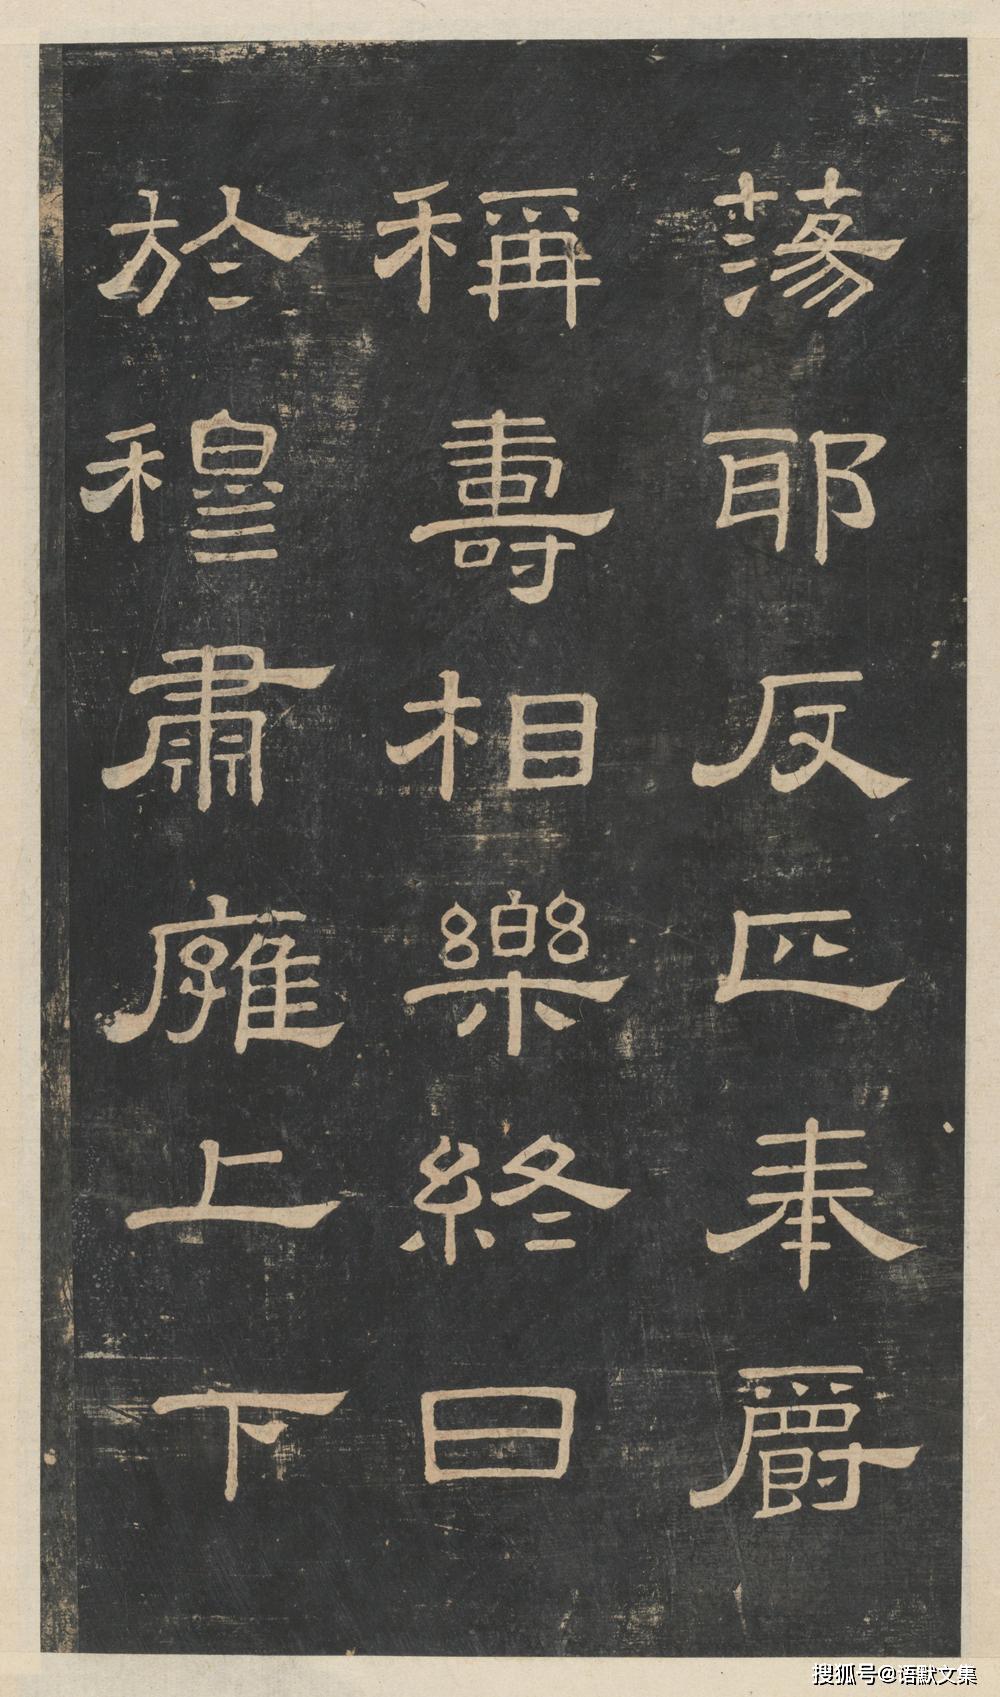 蕩耶反匹奉爵
稱壽相樂終日
於穆肅廱上下
搜狐号@语默文集